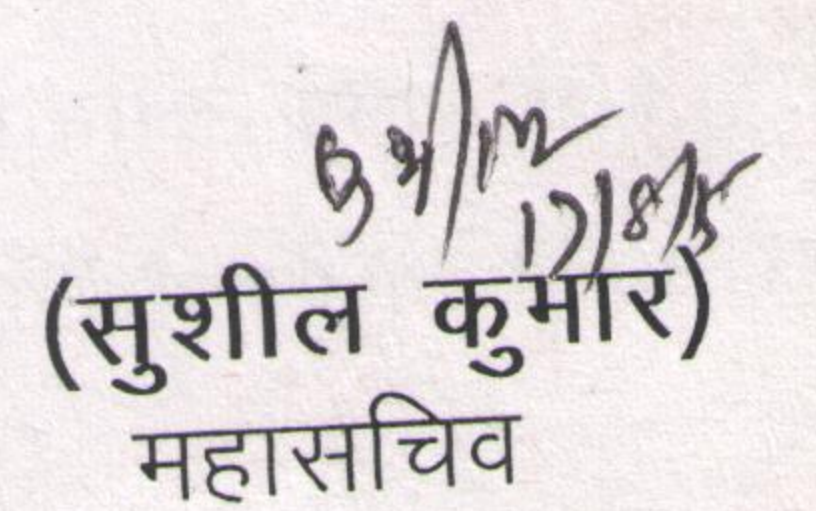 17/8/15
(सुशील कुमार)
महासचिव